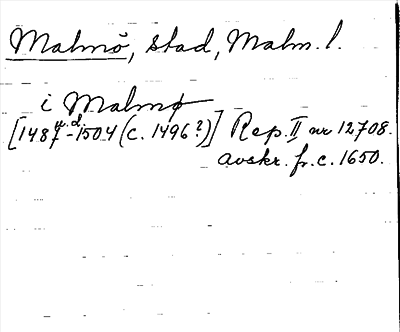 Malmö, stad, Malm. l.
i Malmø
[1487-1504 u.d. (c. 1496?)] Rep. II nr 12708.
avskr. fr. c. 1650.